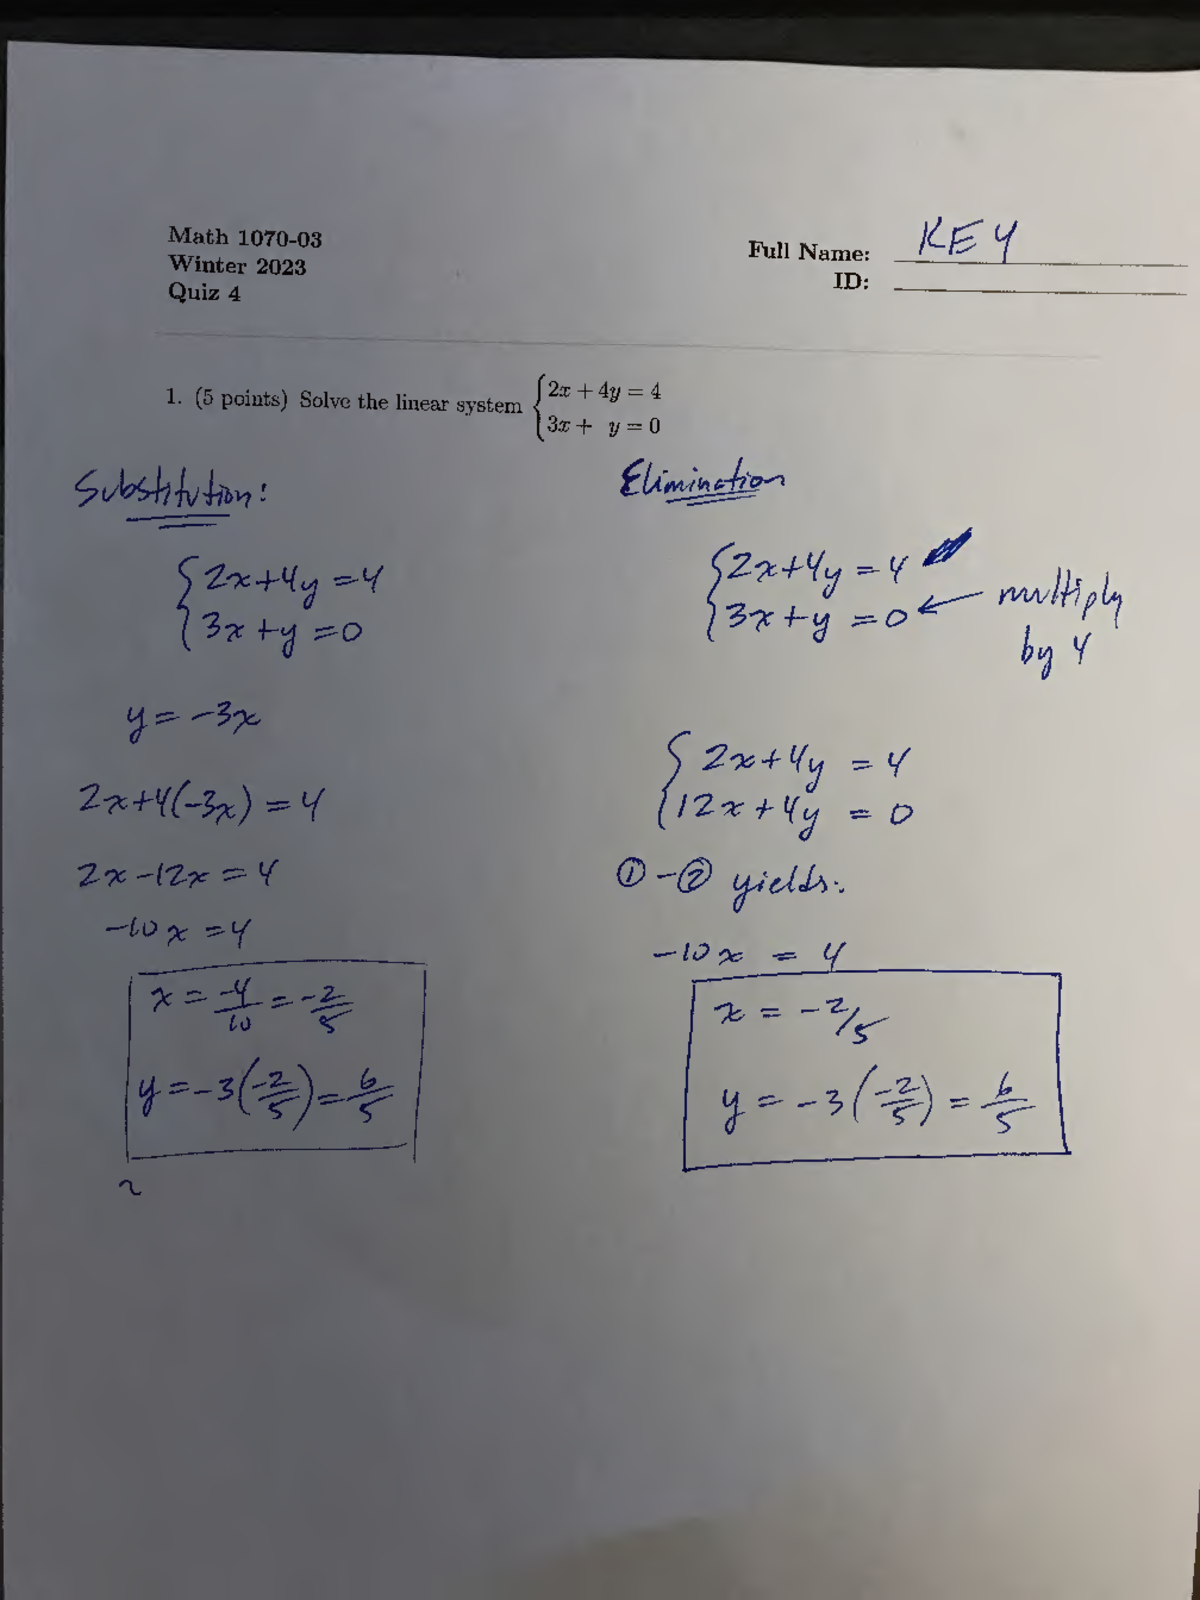 Math 1070-03
Winter 2023
Quiz 4
Full Name: KEY
ID:
1. (5 points) Solve the linear system { 2x + 4y = 4
3x + y = 0
Substitution:
{ 2x+4y = 4
3x + y = 0
y = -3x
2x+4(-3x) = 4
2x -12x = 4
-10x = 4
x = -4/10 = -2/5
y = -3(-2/5) = 6/5
Elimination
{ 2x+4y = 4
3x+y = 0 ← multiply
by 4
{ 2x+4y = 4
12x + 4y = 0
① - ② yields:
-10x = 4
x = -2/5
y = -3(-2/5) = 6/5